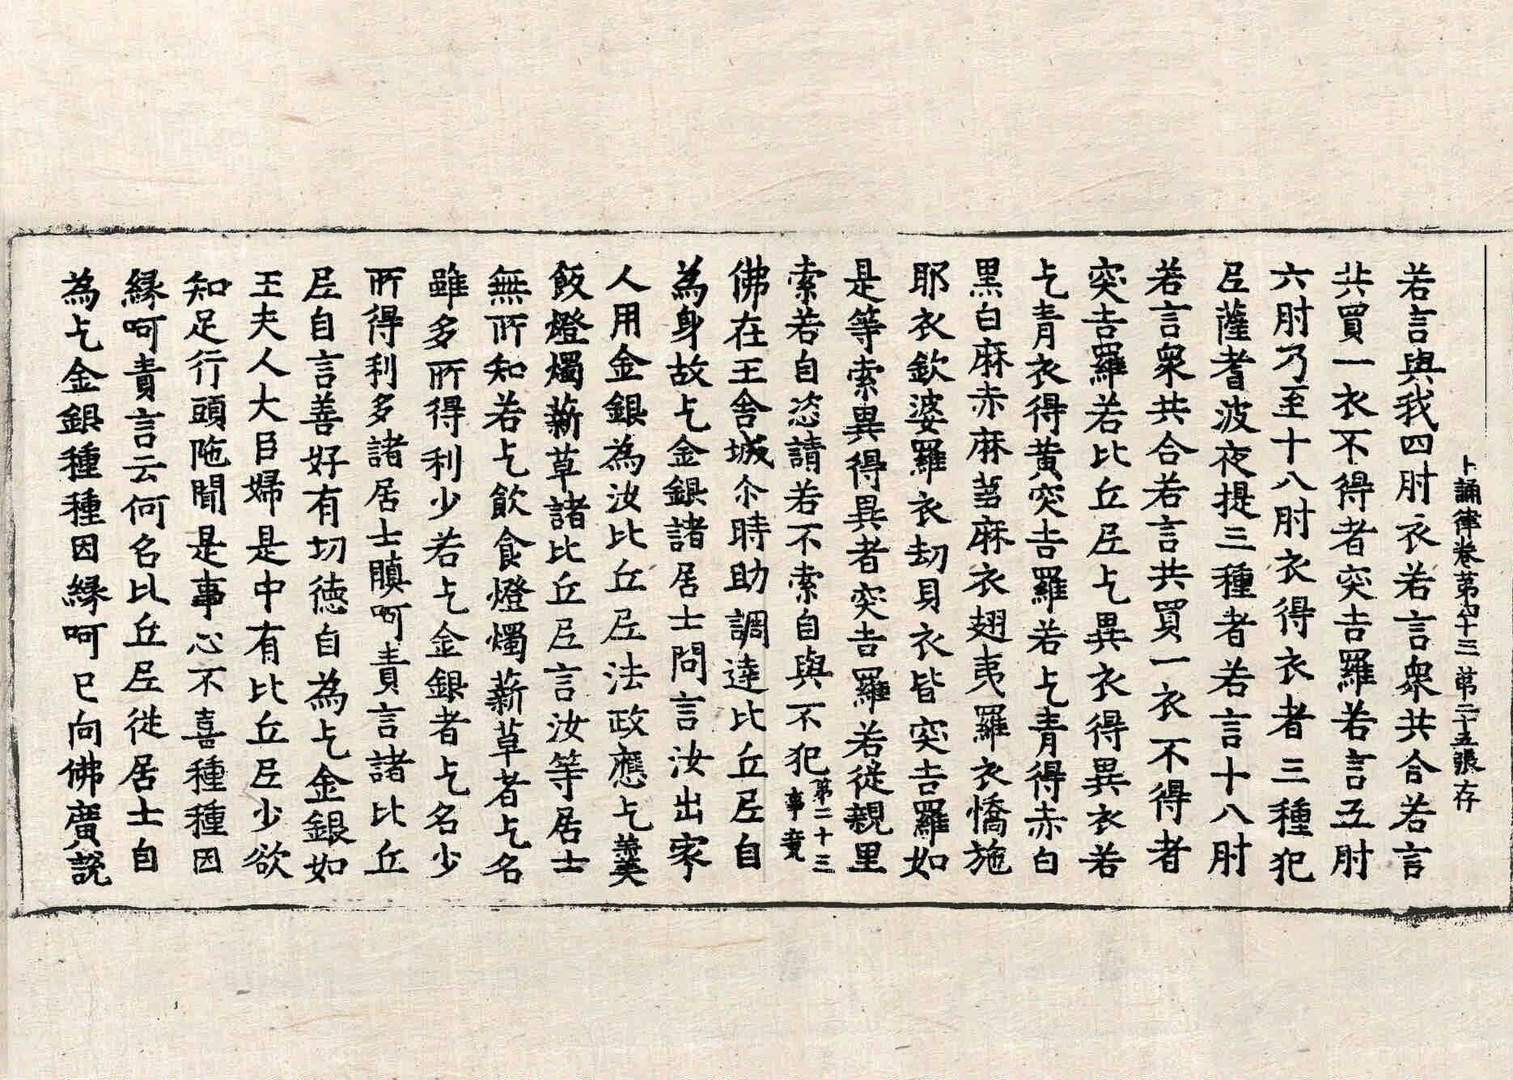 十誦律卷第四十三 第二十五張 存
若言與我四肘衣若言衆共合若言
共買一衣不得者突吉羅若言五肘
六肘乃至十八肘衣得衣者三種犯
尼薩耆波夜提三種者若言十八肘
若言衆共合若言共買一衣不得者
突吉羅若比丘尼乞異衣得異衣若
乞青衣得黄突吉羅若乞青得赤白
黒白麻赤麻芻麻衣翅夷羅衣憍施
耶衣欽婆羅衣劫貝衣皆突吉羅如
是等索異得異者突吉羅若從親里
索若自恣請若不索自與不犯第二十三事竟
佛在王舍城尒時助調達比丘尼自
為身故乞金銀諸居士問言汝出家
人用金銀為汝比丘尼法政應乞羹
飯燈燭薪草諸比丘尼言汝等居士
無所知若乞飲食燈燭薪草者乞名
雖多所得利少若乞金銀者乞名少
所得利多諸居士瞋呵責言諸比丘
尼自言善好有功徳自為乞金銀如
王夫人大臣婦是中有比丘尼少欲
知足行頭陁聞是事心不喜種種因
縁呵責言云何名比丘尼從居士自
為乞金銀種種因縁呵已向佛廣說